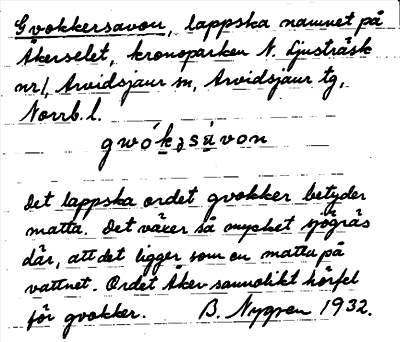 Gvokkersavon, lappska namnet på
Åkerselet, kronoparken N. Ljusträsk
nr 1, Arvidsjaur sn, Arvidsjaur tg,
Norrb. l.
gwókəsàvon
Det lappska ordet gvokker betyder
matta. Det växer så mycket sjögräs
där, att det ligger som en matta på
vattnet. Ordet Åker sannolikt hörfel
för gvokker. B. Nygren 1932.